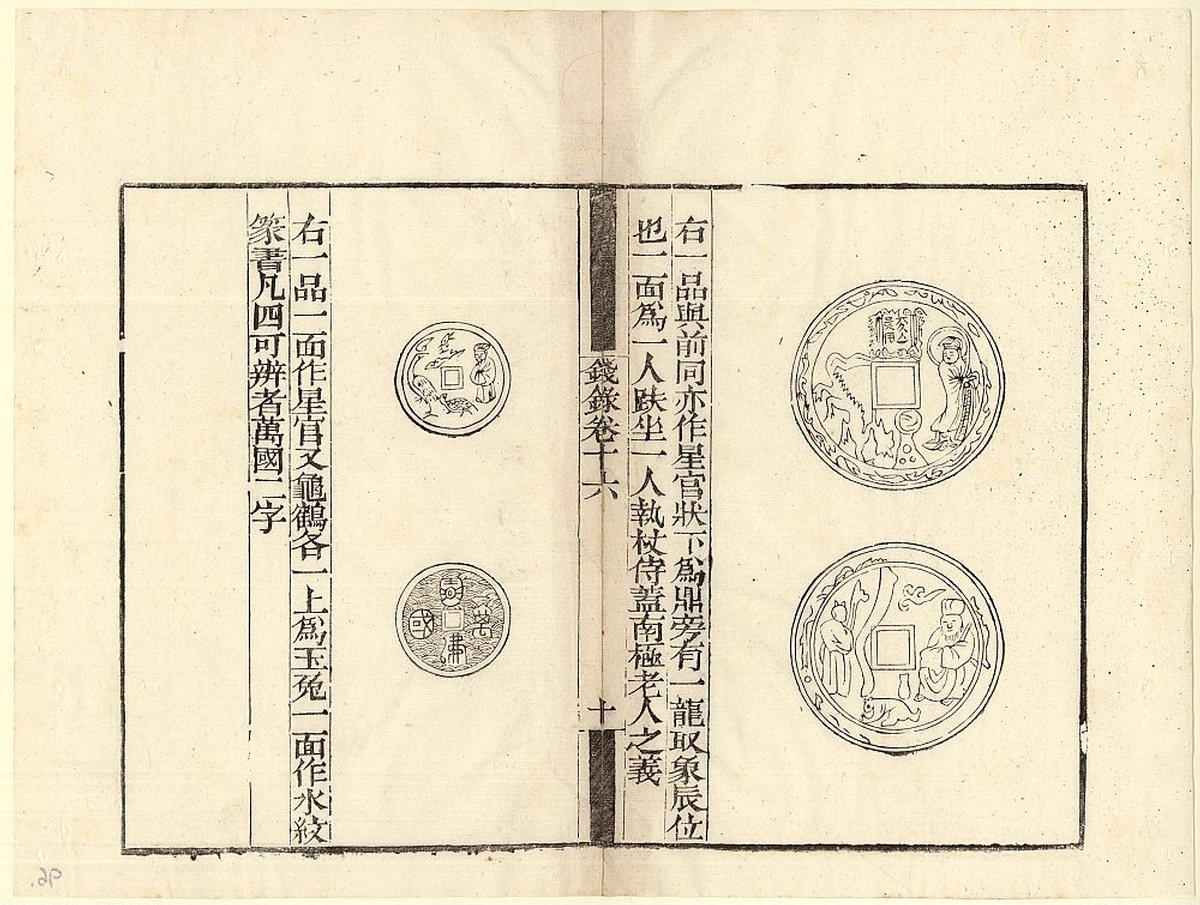 右一品與前同亦作星官狀下爲鼎旁有一龍取象辰位
也一面爲一人趺坐一人執杖侍蓋南極老人之義
錢錄卷十六
十
右一品一面作星官又龜鶴各一上爲玉兔一面作水紋
篆書凡四可辨者萬國二字
萬
國
96.